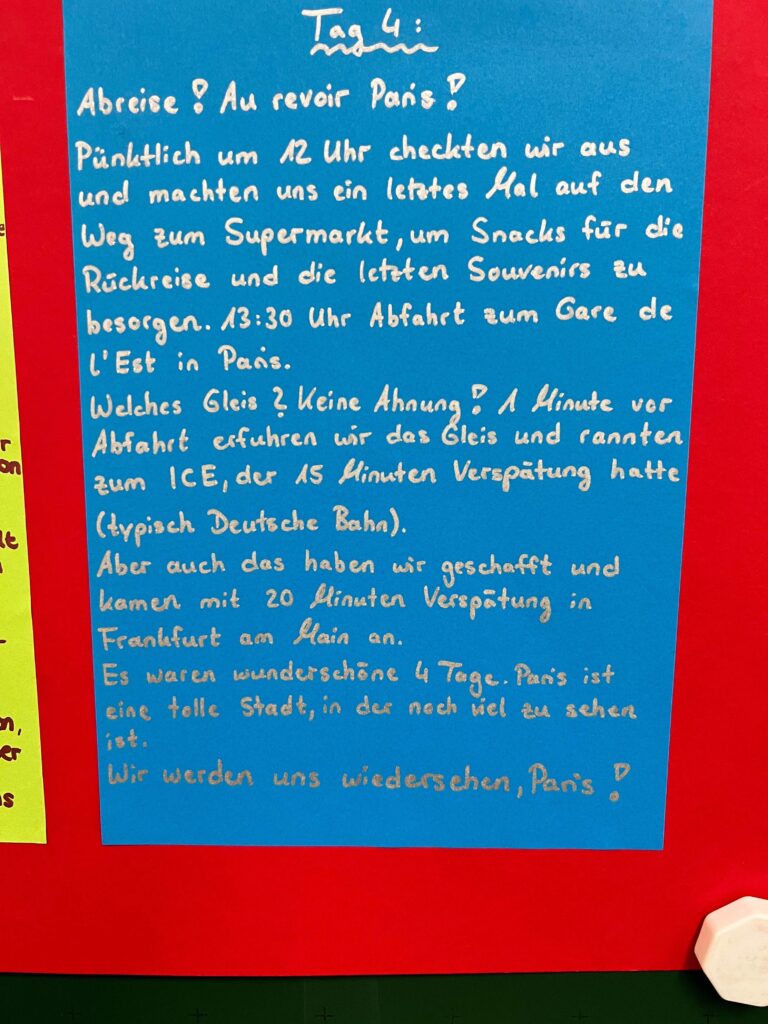 Tag 4:
Abreise! Au revoir Paris!
Pünktlich um 12 Uhr checkten wir aus
und machten uns ein letztes Mal auf den
Weg zum Supermarkt, um Snacks für die
Rückreise und die letzten Souvenirs zu
besorgen. 13:30 Uhr Abfahrt zum Gare de
l'Est in Paris.
Welches Gleis? Keine Ahnung! 1 Minute vor
Abfahrt erfuhren wir das Gleis und rannten
zum ICE, der 15 Minuten Verspätung hatte
(typisch Deutsche Bahn).
Aber auch das haben wir geschafft und
kamen mit 20 Minuten Verspätung in
Frankfurt am Main an.
Es waren wunderschöne 4 Tage. Paris ist
eine tolle Stadt, in der noch viel zu sehen
ist.
Wir werden uns wiedersehen, Paris!